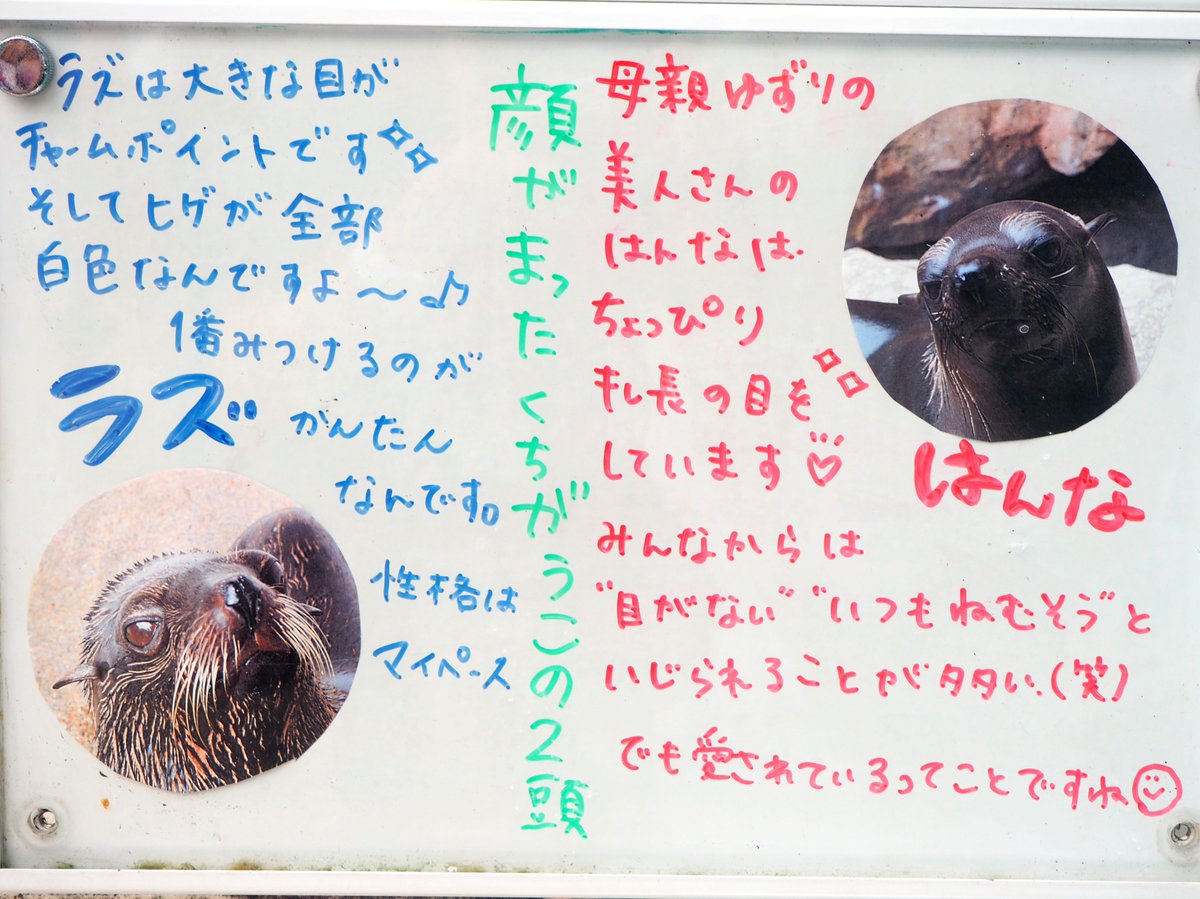 ラズは大きな目が
チャームポイントです
そしてヒゲが全部
白色なんですよ〜♪
1番みつけるのが
かんたん
なんです。
ラズ
性格は
マイペース
顔がまったくちがうこの2頭
母親ゆずりの
美人さんの
はんなは
ちょっぴり
切れ長の目を
しています♡
はんな
みんなからは
"目がない" "いつもねむそう"と
いじられることが多い、(笑)
でも愛されているってことですね